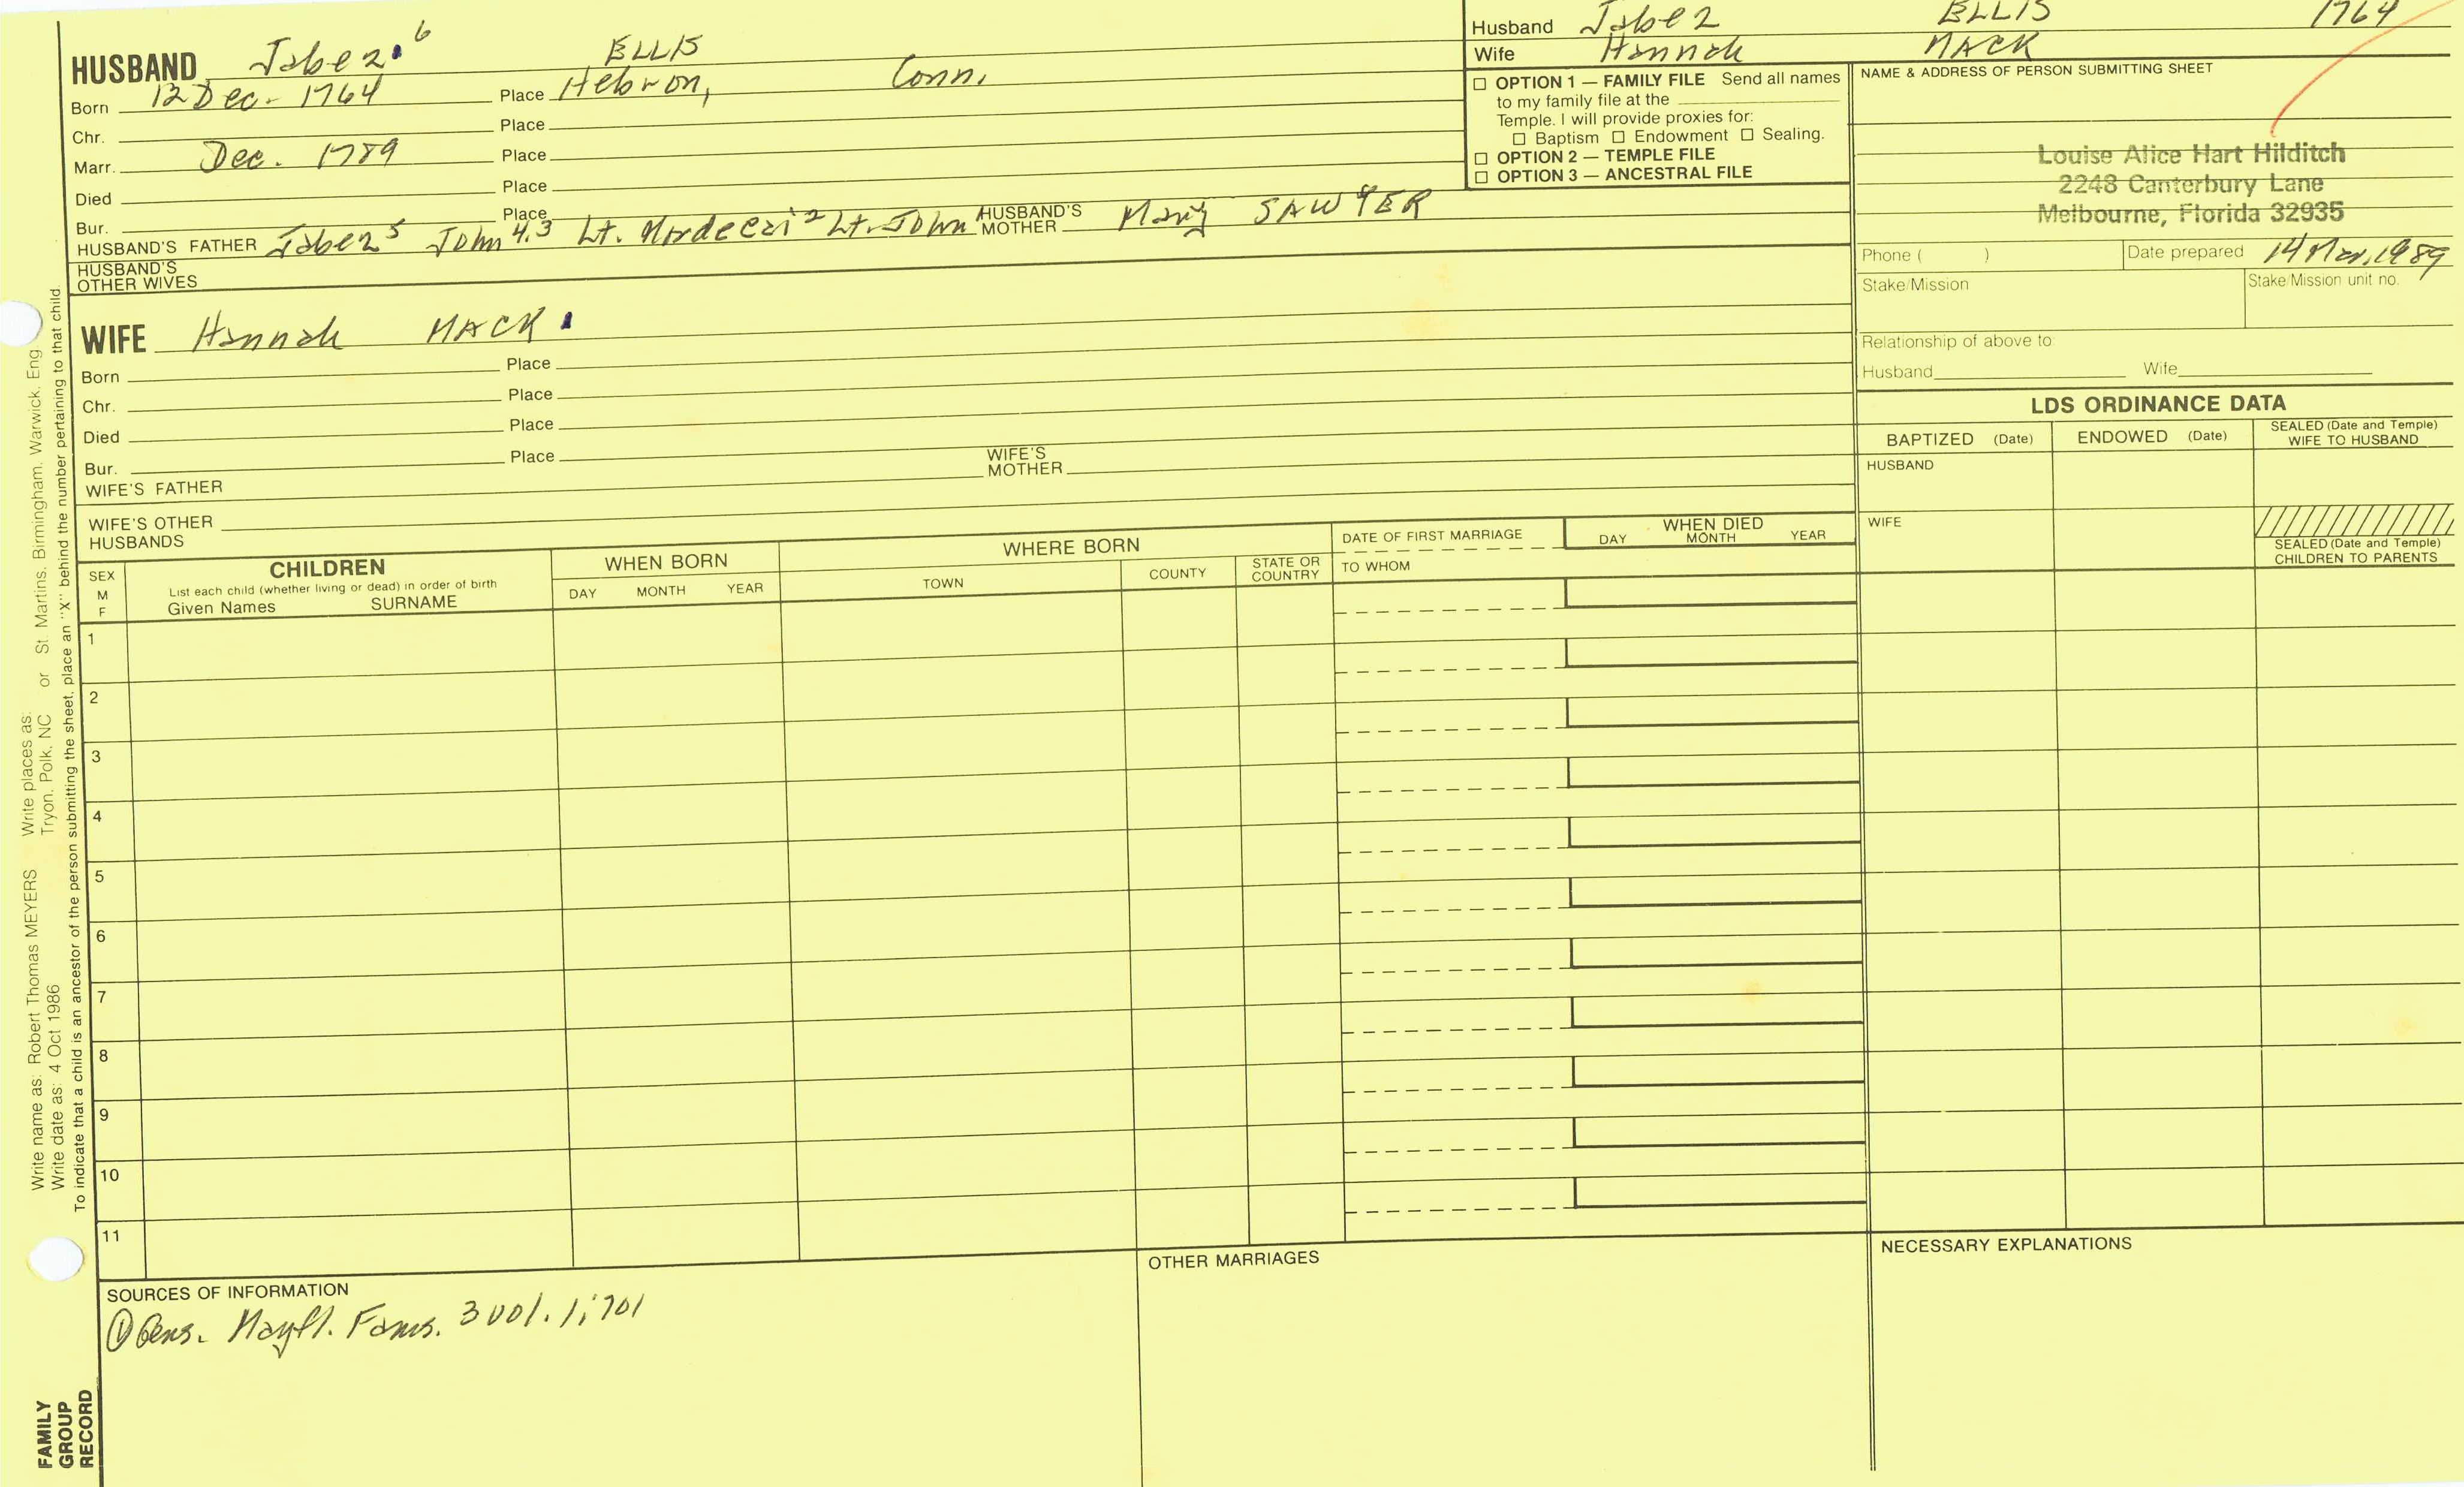 Husband Jabez ELLIS 1764
Wife Hannah MACK
HUSBAND Jabez 6 ELLIS
Born 12 Dec. 1764 Place Hebron, Conn.
Chr. Place
Marr. Dec. 1789 Place
Died Place
Bur. Place
HUSBAND'S FATHER Jabez5 John 4,3 Lt. Mordecai2 Lt. John HUSBAND'S MOTHER Mary SAWYER
HUSBAND'S OTHER WIVES
☐ OPTION 1 — FAMILY FILE Send all names
to my family file at the
Temple. I will provide proxies for:
☐ Baptism ☐ Endowment ☐ Sealing.
☐ OPTION 2 — TEMPLE FILE
☐ OPTION 3 — ANCESTRAL FILE
NAME & ADDRESS OF PERSON SUBMITTING SHEET
Louise Alice Hart Hilditch
2248 Canterbury Lane
Melbourne, Florida 32935
Phone ( ) Date prepared 14 Mar, 1989
Stake/Mission Stake/Mission unit no.
Relationship of above to:
Husband Wife
WIFE Hannah MACK
Born Place
Chr. Place
Died Place
Bur. Place
WIFE'S FATHER WIFE'S MOTHER
WIFE'S OTHER HUSBANDS
LDS ORDINANCE DATA
BAPTIZED (Date) ENDOWED (Date) SEALED (Date and Temple) WIFE TO HUSBAND
HUSBAND
WIFE
SEALED (Date and Temple) CHILDREN TO PARENTS
SEX M F
CHILDREN
List each child (whether living or dead) in order of birth
Given Names SURNAME
WHEN BORN
DAY MONTH YEAR
WHERE BORN
TOWN COUNTY STATE OR COUNTRY
DATE OF FIRST MARRIAGE
TO WHOM
WHEN DIED
DAY MONTH YEAR
1
2
3
4
5
6
7
8
9
10
11
SOURCES OF INFORMATION
① Gens. Mayfl. Fams. 3 vol. 1;701
OTHER MARRIAGES
NECESSARY EXPLANATIONS
Write name as: Robert Thomas MEYERS Write places as: Tryon, Polk, NC or St. Martins, Birmingham, Warwick, Eng.
Write date as: 4 Oct 1986
To indicate that a child is an ancestor of the person submitting the sheet, place an "X" behind the number pertaining to that child.
FAMILY
GROUP
RECORD